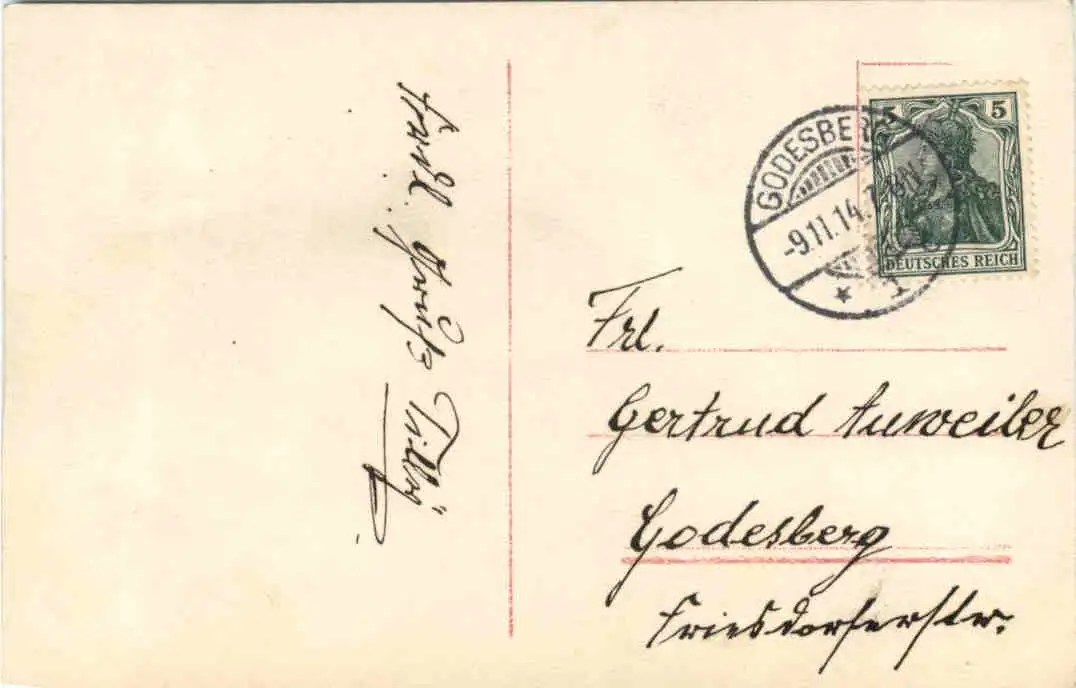 Herzl. Gruß Tilly
GODESBERG
-9.11.14.
5 5
DEUTSCHES REICH
Frl.
Gertrud Auweiler
Godesberg
Friesdorferstr.